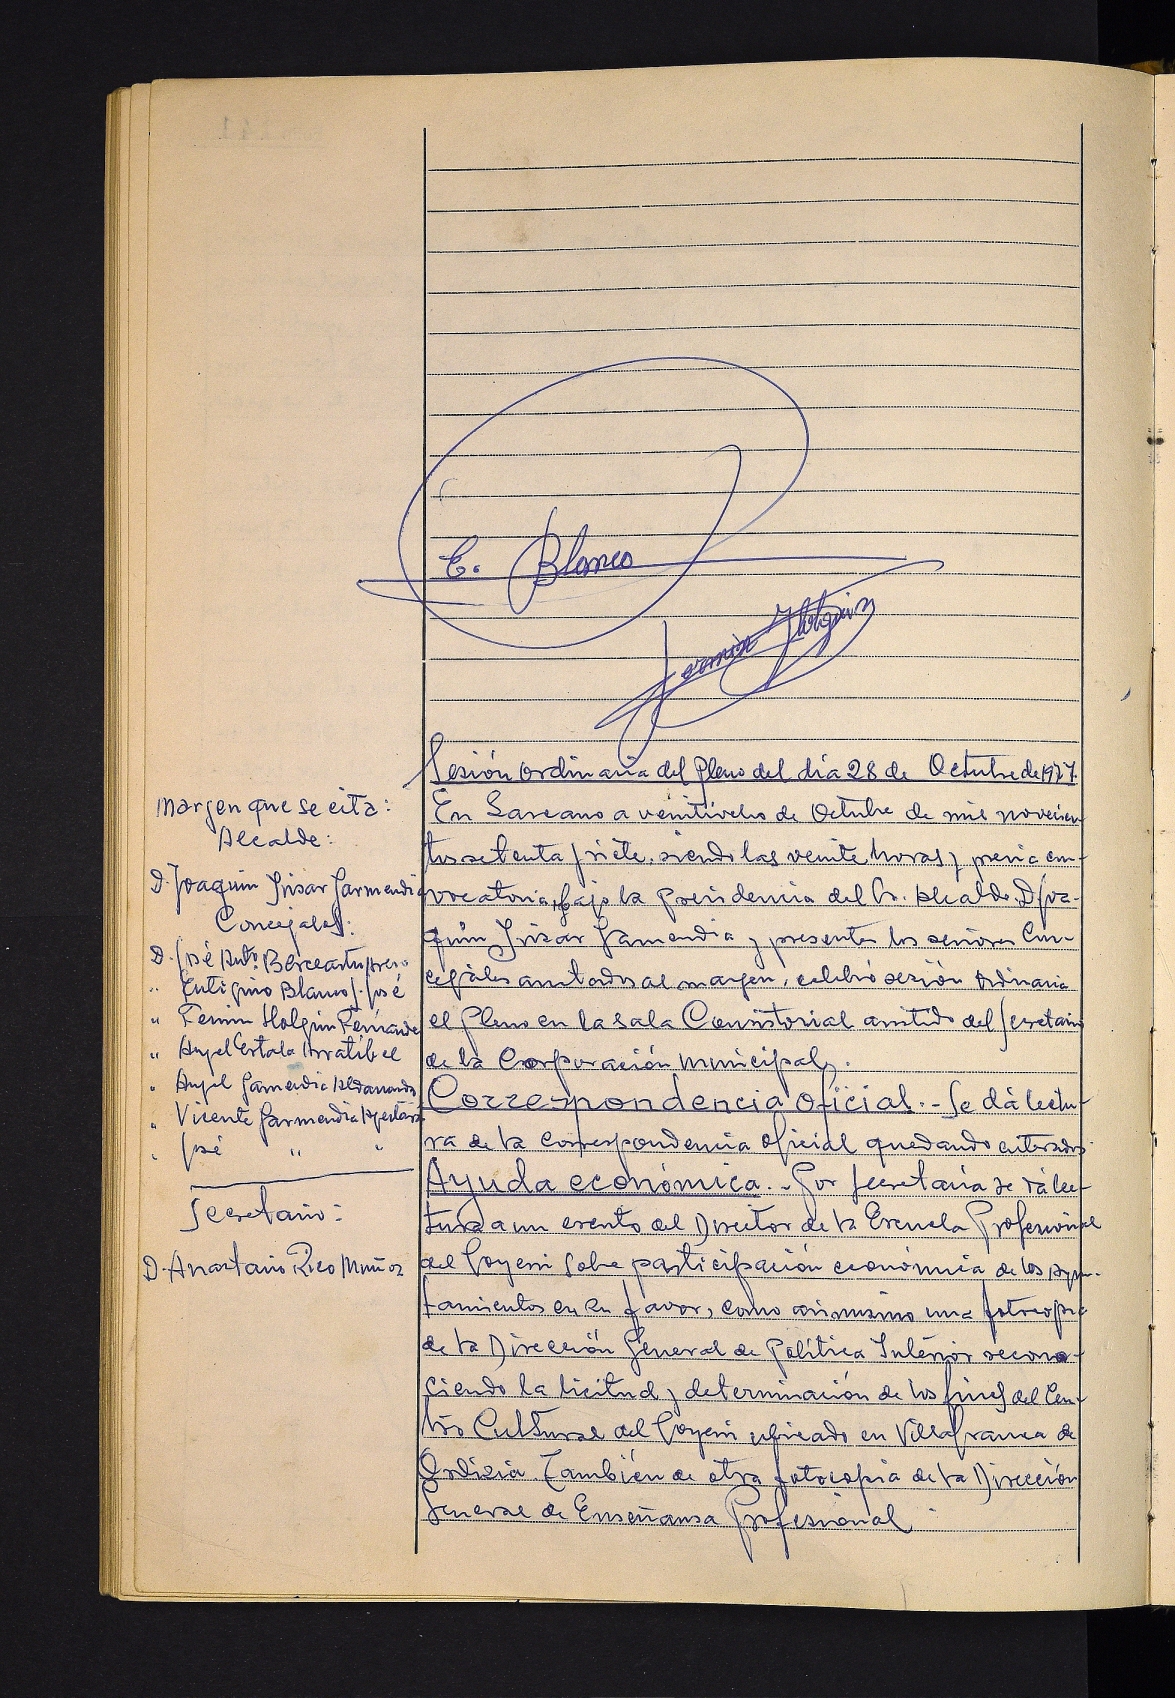 E. Blanco
Fermin Holguin
Sesión ordinaria del Pleno del día 28 de Octubre de 1977.
Margen que se cita:
Alcalde:
D. Joaquin Irizar Garmendia
Concejales:
D. José Antº Berceartu
" Eutiquino Blanco S. José
" Fermin Holguin Fernandez
" Angel Estala Arratibel
" Angel Garmendia Aldanondo
" Vicente Garmendia Ayestarán
" José " "
Secretario:
D. Anastasio Rico Muñoz
En Lazcano a veintiocho de Octubre de mil novecien-
tos setenta y siete, siendo las veinte horas y previa con-
vocatoria, bajo la Presidencia del Sr. Alcalde D. Joa-
quin Irizar Garmendia y presentes los señores Con-
cejales anotados al margen, celebró sesión ordinaria
el Pleno en la Sala Consistorial asistido del Secretario
de la Corporación Municipal.
Correspondencia oficial.- Se dá lectu-
ra de la correspondencia oficial quedando enterados.
Ayuda económica.- Por Secretaría se dá lec-
tura a un escrito del Director de la Escuela Profesional
del Goyerri sobre participación económica de los Ayun-
tamientos en su favor, como asimismo una fotocopia
de la Dirección General de Política Interior recono-
ciendo la licitud y determinación de los fines del Cen-
tro Cultural del Goyerri ubicado en Villafranca de
Ordizia. También de otra fotocopia de la Dirección
General de Enseñanza Profesional